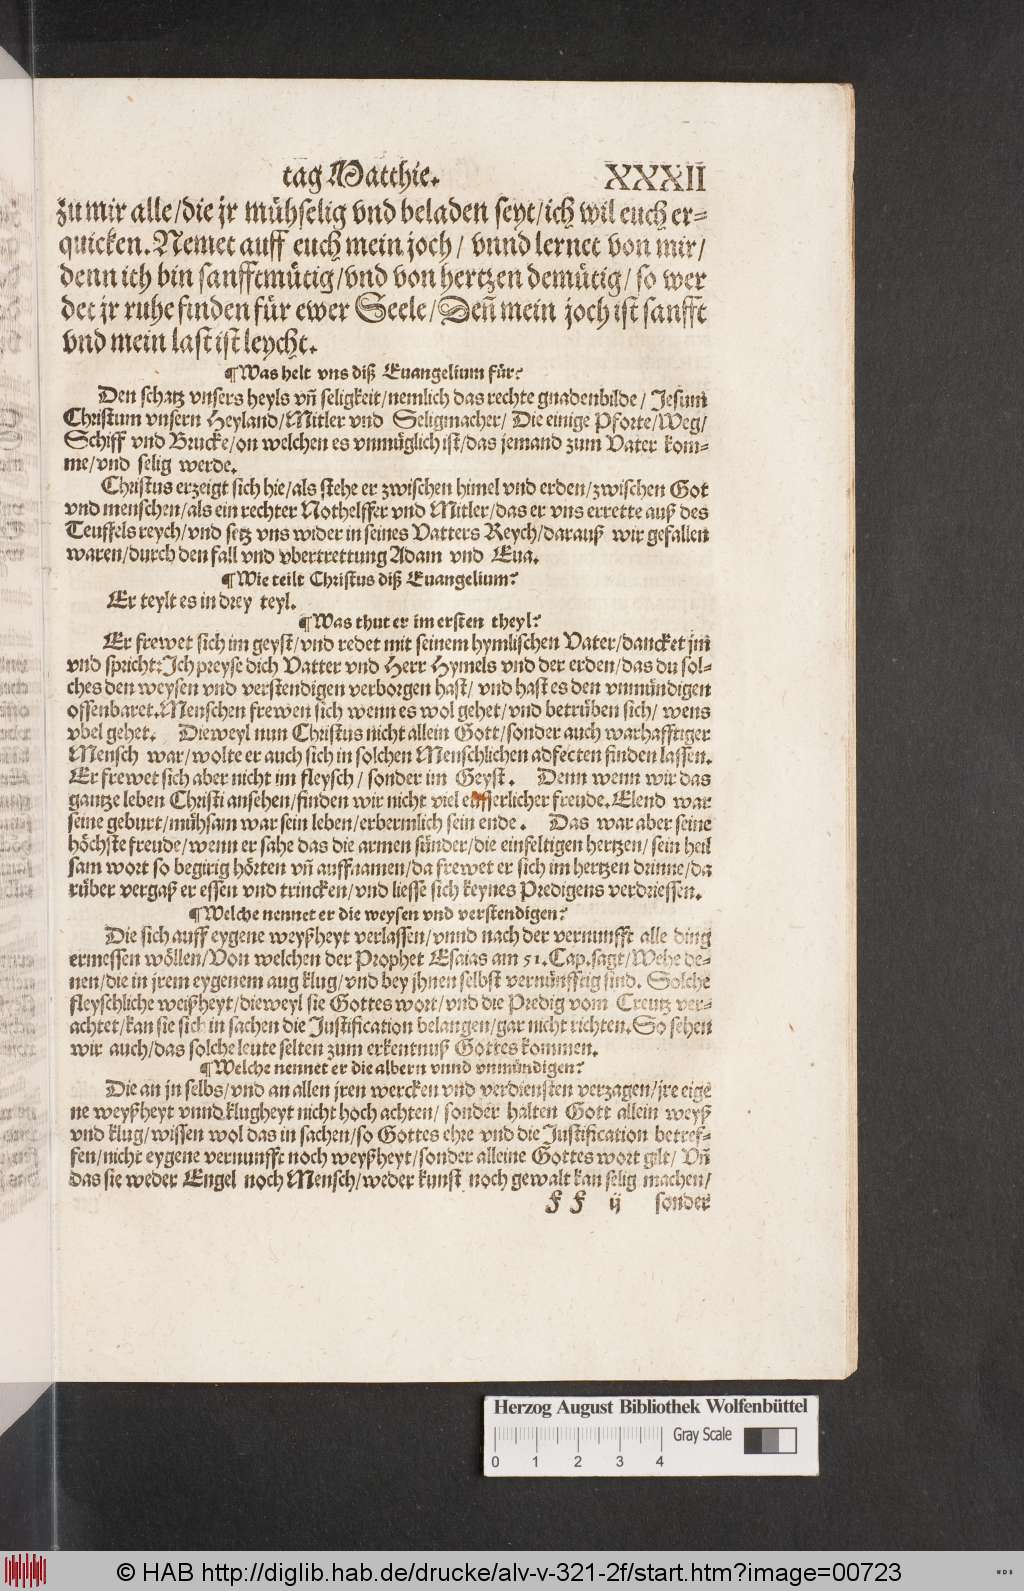 tag Matthie. XXXII
zu mir alle/die jr mühselig vnd beladen seyt/ich wil euch er=
quicken. Nemet auff euch mein joch/ vnnd lernet von mir/
denn ich bin sanfftmütig/vnd von hertzen demütig/ so wer
det jr ruhe finden für ewer Seele/Deñ mein joch ist sanfft
vnd mein last ist leycht.
¶Was helt vns diß Euangelium für?
Den schatz vnsers heyls vñ seligkeit/nemlich das rechte gnadenbilde/ Jesum
Christum vnsern Heyland/Mitler vnd Seligmacher/ Die einige Pforte/Weg/
Schiff vnd Brucke/on welchen es vnmüglich ist/das jemand zum Vater kom=
me/vnd selig werde.
Christus erzeigt sich hie/als stehe er zwischen himel vnd erden/zwischen Got
vnd menschen/als ein rechter Nothelffer vnd Mitler/das er vns errette auß des
Teuffels reych/vnd setz vns wider in seines Vatters Reych/darauß wir gefallen
waren/durch den fall vnd vbertrettung Adam vnd Eua.
¶Wie teilt Christus diß Euangelium?
Er teylt es in drey teyl.
¶Was thut er im ersten theyl?
Er frewet sich im geyst/vnd redet mit seinem hymlischen Vater/dancket jm
vnd spricht: Ich preyse dich Vatter vnd Herr Hymels vnd der erden/das du sol=
ches den weysen vnd verstendigen verborgen hast/ vnd hast es den vnmündigen
offenbaret. Menschen frewen sich wenn es wol gehet/vnd betrüben sich/ wens
vbel gehet. Dieweyl nun Christus nicht allein Gott/sonder auch warhafftiger
Mensch war/wolte er auch sich in solchen Menschlichen adfecten finden lassen.
Er frewet sich aber nicht im fleysch/ sonder im Geyst. Denn wenn wir das
gantze leben Christi ansehen/finden wir nicht viel eusserlicher freude. Elend war
seine geburt/mühsam war sein leben/erbermlich sein ende. Das war aber seine
höchste freude/wenn er sahe das die armen sünder/die einfeltigen hertzen/ sein heil
sam wort so begirig hörten vñ auffnamen/da frewet er sich im hertzen drinne/da
rüber vergaß er essen vnd trincken/vnd liesse sich keynes Predigens verdriessen.
¶Welche nennet er die weysen vnd verstendigen?
Die sich auff eygene weyßheyt verlassen/vnnd nach der vernunfft alle ding
ermessen wöllen/Von welchen der Prophet Esaias am 51. Cap. sagt/Wehe de=
nen/die in jrem eygenem aug klug/vnd bey jhnen selbst vernünfftig sind. Solche
fleyschliche weißheyt/dieweyl sie Gottes wort/vnd die Predig vom Creutz ver=
achtet/kan sie sich in sachen die Justification belangen/gar nicht richten. So sehen
wir auch/das solche leute selten zum erkentnuß Gottes kommen.
¶Welche nennet er die albern vnnd vnmündigen?
Die an jn selbs/vnd an allen jren wercken vnd verdiensten verzagen/jre eige
ne weyßheyt vnnd klugheyt nicht hoch achten/ sonder halten Gott allein weyß
vnd klug/wissen wol das in sachen/so Gottes ehre vnd die Justification betref=
fen/nicht eygene vernunfft noch weyßheyt/sonder alleine Gottes wort gilt/ Vñ
das sie weder Engel noch Mensch/weder kunst noch gewalt kan selig machen/
f f ij sonder
Herzog August Bibliothek Wolfenbüttel
Gray Scale
0 1 2 3 4
© HAB http://diglib.hab.de/drucke/alv-v-321-2f/start.htm?image=00723